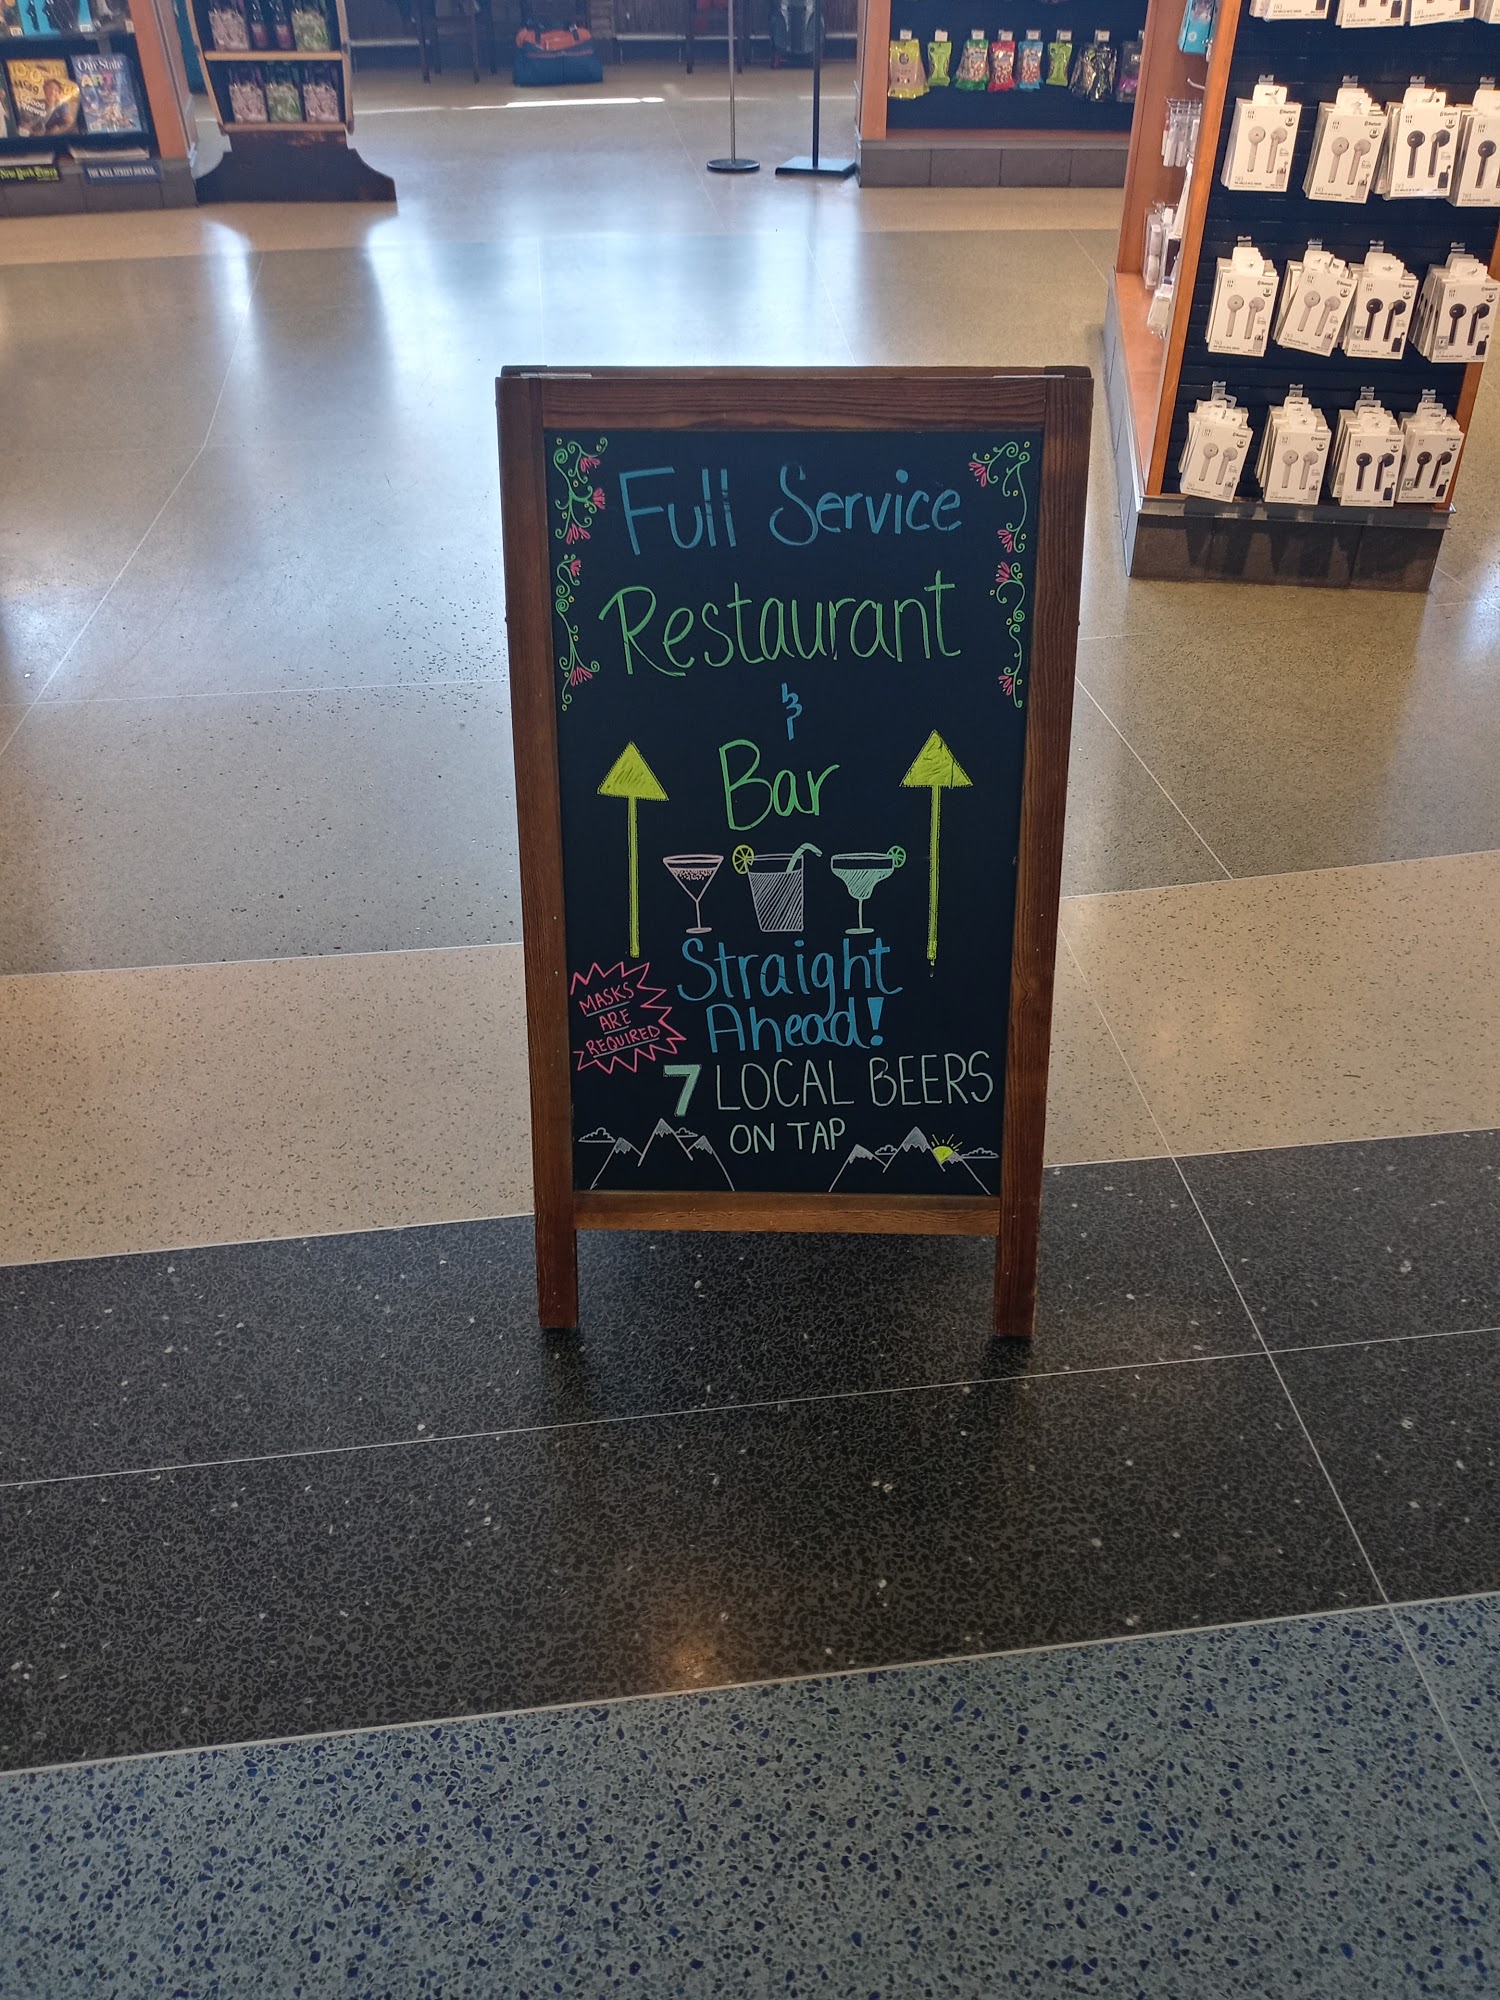 Our State
ART
New York Times
THE WALL STREET JOURNAL
Full Service
Restaurant
&
Bar
Straight
Ahead!
MASKS
ARE
REQUIRED
7 LOCAL BEERS
ON TAP